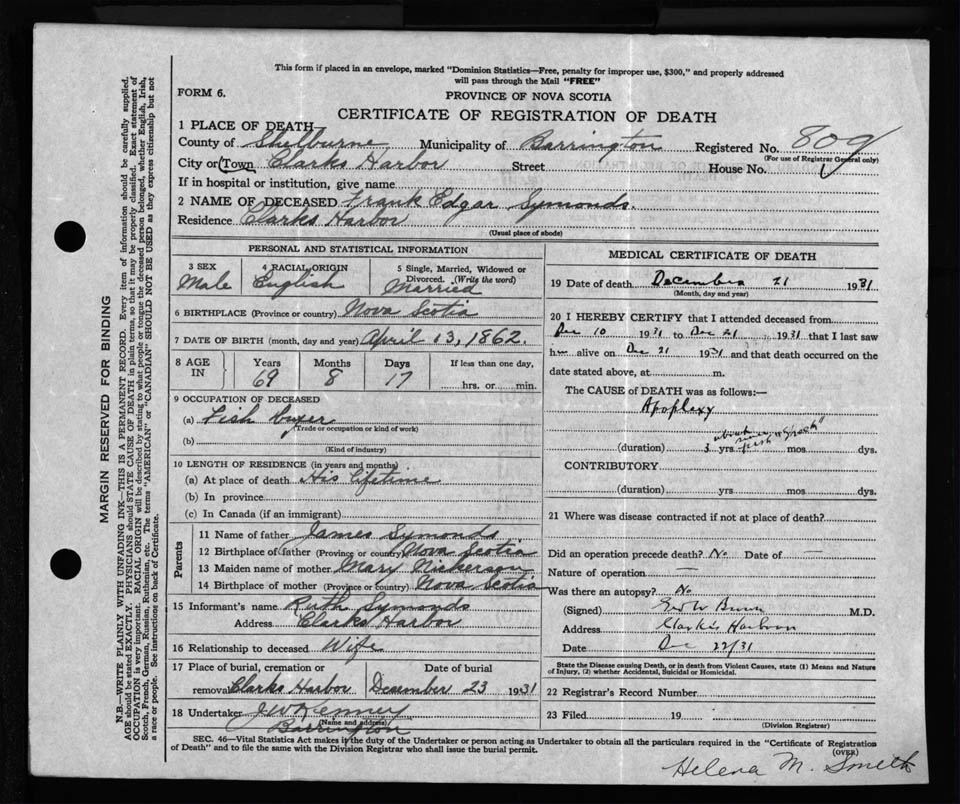 This form if placed in an envelope, marked "Dominion Statistics—Free, penalty for improper use, $300," and properly addressed
will pass through the Mail "FREE"
FORM 6.
PROVINCE OF NOVA SCOTIA
CERTIFICATE OF REGISTRATION OF DEATH
1 PLACE OF DEATH
County of Shelburne Municipality of Barrington Registered No. 809
(For use of Registrar General only)
City or (Town Clarks Harbor Street House No.
If in hospital or institution, give name
2 NAME OF DECEASED Frank Edgar Symonds.
Residence Clarks Harbor
(Usual place of abode)
PERSONAL AND STATISTICAL INFORMATION
3 SEX 4 RACIAL ORIGIN 5 Single, Married, Widowed or
Divorced. (Write the word)
Male English Married
6 BIRTHPLACE (Province or country) Nova Scotia
7 DATE OF BIRTH (month, day and year) April 13, 1862.
8 AGE IN Years Months Days If less than one day,
69 8 17 hrs. or min.
9 OCCUPATION OF DECEASED
(a) Fish buyer
(Trade or occupation or kind of work)
(b)
(Kind of industry)
10 LENGTH OF RESIDENCE (in years and months)
(a) At place of death His lifetime
(b) In province
(c) In Canada (if an immigrant)
Parents
11 Name of father James Symonds
12 Birthplace of father (Province or country) Nova Scotia
13 Maiden name of mother Mary Nickerson
14 Birthplace of mother (Province or country) Nova Scotia
15 Informant's name Ruth Symonds
Address Clarks Harbor
16 Relationship to deceased Wife
17 Place of burial, cremation or Date of burial
removal Clarks Harbor December 23 1931
18 Undertaker J W Kenney
(Name and address)
Barrington
MEDICAL CERTIFICATE OF DEATH
19 Date of death December 21 1931
(Month, day and year)
20 I HEREBY CERTIFY that I attended deceased from
Dec 10 1931 to Dec 21 1931 that I last saw
him alive on Dec 21 1931 and that death occurred on the
date stated above, at m.
The CAUSE of DEATH was as follows:—
Apoplexy
about since first "Shock"
(duration) 3 yrs mos dys.
CONTRIBUTORY
(duration) yrs mos dys.
21 Where was disease contracted if not at place of death?
Did an operation precede death? No Date of —
Nature of operation —
Was there an autopsy? No
(Signed) M.D.
Address Clarks Harbour
Date Dec 22/31
State the Disease causing Death, or in death from Violent Causes, state (1) Means and Nature
of Injury, (2) whether Accidental, Suicidal or Homicidal.
22 Registrar's Record Number
23 Filed 19
(Division Registrar)
SEC. 46—Vital Statistics Act makes it the duty of the Undertaker or person acting as Undertaker to obtain all the particulars required in the "Certificate of Registration
of Death" and to file the same with the Division Registrar who shall issue the burial permit.
(OVER)
Helena M. Smith
MARGIN RESERVED FOR BINDING
N.B.—WRITE PLAINLY WITH UNFADING INK—THIS IS A PERMANENT RECORD. Every item of information should be carefully supplied.
AGE should be stated EXACTLY. PHYSICIANS should STATE CAUSE OF DEATH in plain terms, so that it may be properly classified. Exact statement of
OCCUPATION is very important. RACIAL ORIGIN will be described by stating to what people or tongue the deceased person belonged, whether English, Irish,
Scotch, French, German, Russian, Ruthenian, etc. The terms "AMERICAN" or "CANADIAN" SHOULD NOT BE USED as they express citizenship but not
a race or people. See instructions on back of Certificate.